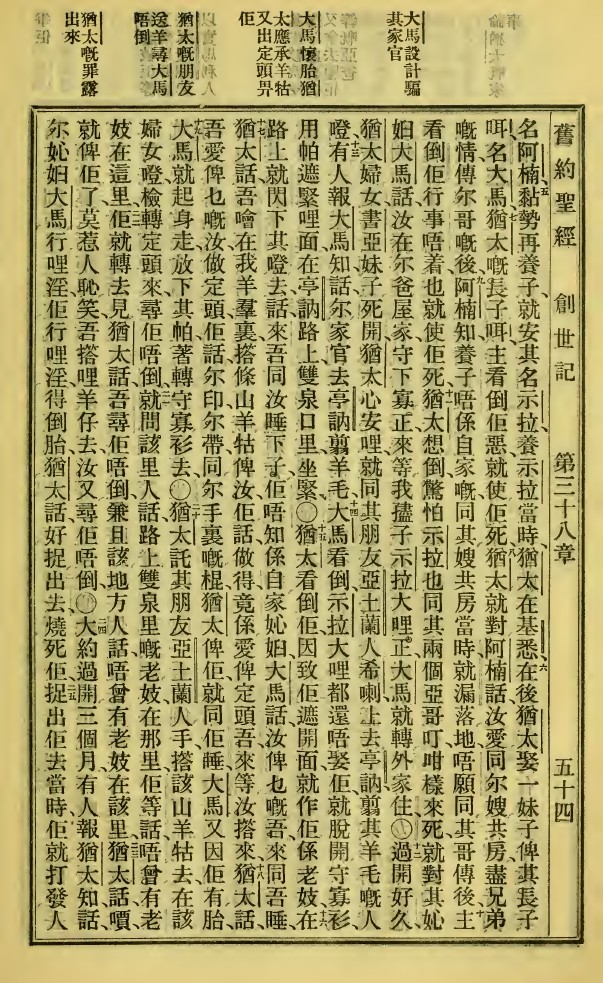 舊約聖經 創世記 第三十八章 五十四
大馬設計騙
其家官
大馬懷胎猶
太應承羊牯
又出定頭畀
佢
猶太嘅朋友
送羊尋大馬
唔倒
猶太嘅罪露
出來
名阿楠黏勢再養子就安其名示拉養示拉當時猶太在基悉在後猶太娶一妹子俾其長子
咡名大馬猶太嘅長子咡主看倒佢惡就使佢死猶太就對阿楠話汝愛同尔嫂共房盡兄弟
嘅情傳尔哥嘅後阿楠知養子唔係自家嘅同其嫂共房當時就漏落地唔願同其哥傳後主
看倒佢行事唔着也就使佢死猶太想倒驚怕示拉也同其兩個亞哥叮咁樣來死就對其妣
妇大馬話汝在尔爸屋家守下寡正來等我孻子示拉大哩正大馬就轉外家住〇過開好久
猶太婦女書亞妹子死開猶太心安哩就同其朋友亞土蘭人希喇上去亭訥翦其羊毛嘅人
嶝有人報大馬知話尔家官去亭訥翦羊毛大馬看倒示拉大哩都還唔娶佢就脫開守寡衫
用帕遮緊哩面在亭訥路上雙泉口里坐緊〇猶太看倒佢因致佢遮開面就作佢係老妓在
路上就閃下其嶝去話來吾同汝睡下子佢唔知係自家妣妇大馬話汝俾乜嘅吾來同吾睡
猶太話吾噲在我羊羣裏搭條山羊牯俾汝佢話做得竟係愛俾定頭吾來等汝搭來猶太話
吾愛俾乜嘅汝做定頭佢話尔印尔帶同尔手裏嘅棍猶太俾佢就同佢睡大馬又因佢有胎
大馬就起身走放下其帕著轉守寡衫去〇猶太託其朋友亞土蘭人手搭該山羊牯去在該
婦女嶝檢轉定頭來尋佢唔倒就問該里人話路上雙泉里嘅老妓在那里佢等話唔曾有老
妓在這里佢就轉去見猶太話吾尋佢唔倒兼且該地方人話唔曾有老妓在該里猶太話嘪
就俾佢了莫惹人恥笑吾搭哩羊仔去汝又尋佢唔倒〇大約過開三個月有人報猶太知話
尔妣妇大馬行哩淫佢行哩淫得倒胎猶太話好捉出去燒死佢捉出佢去當時佢就打發人